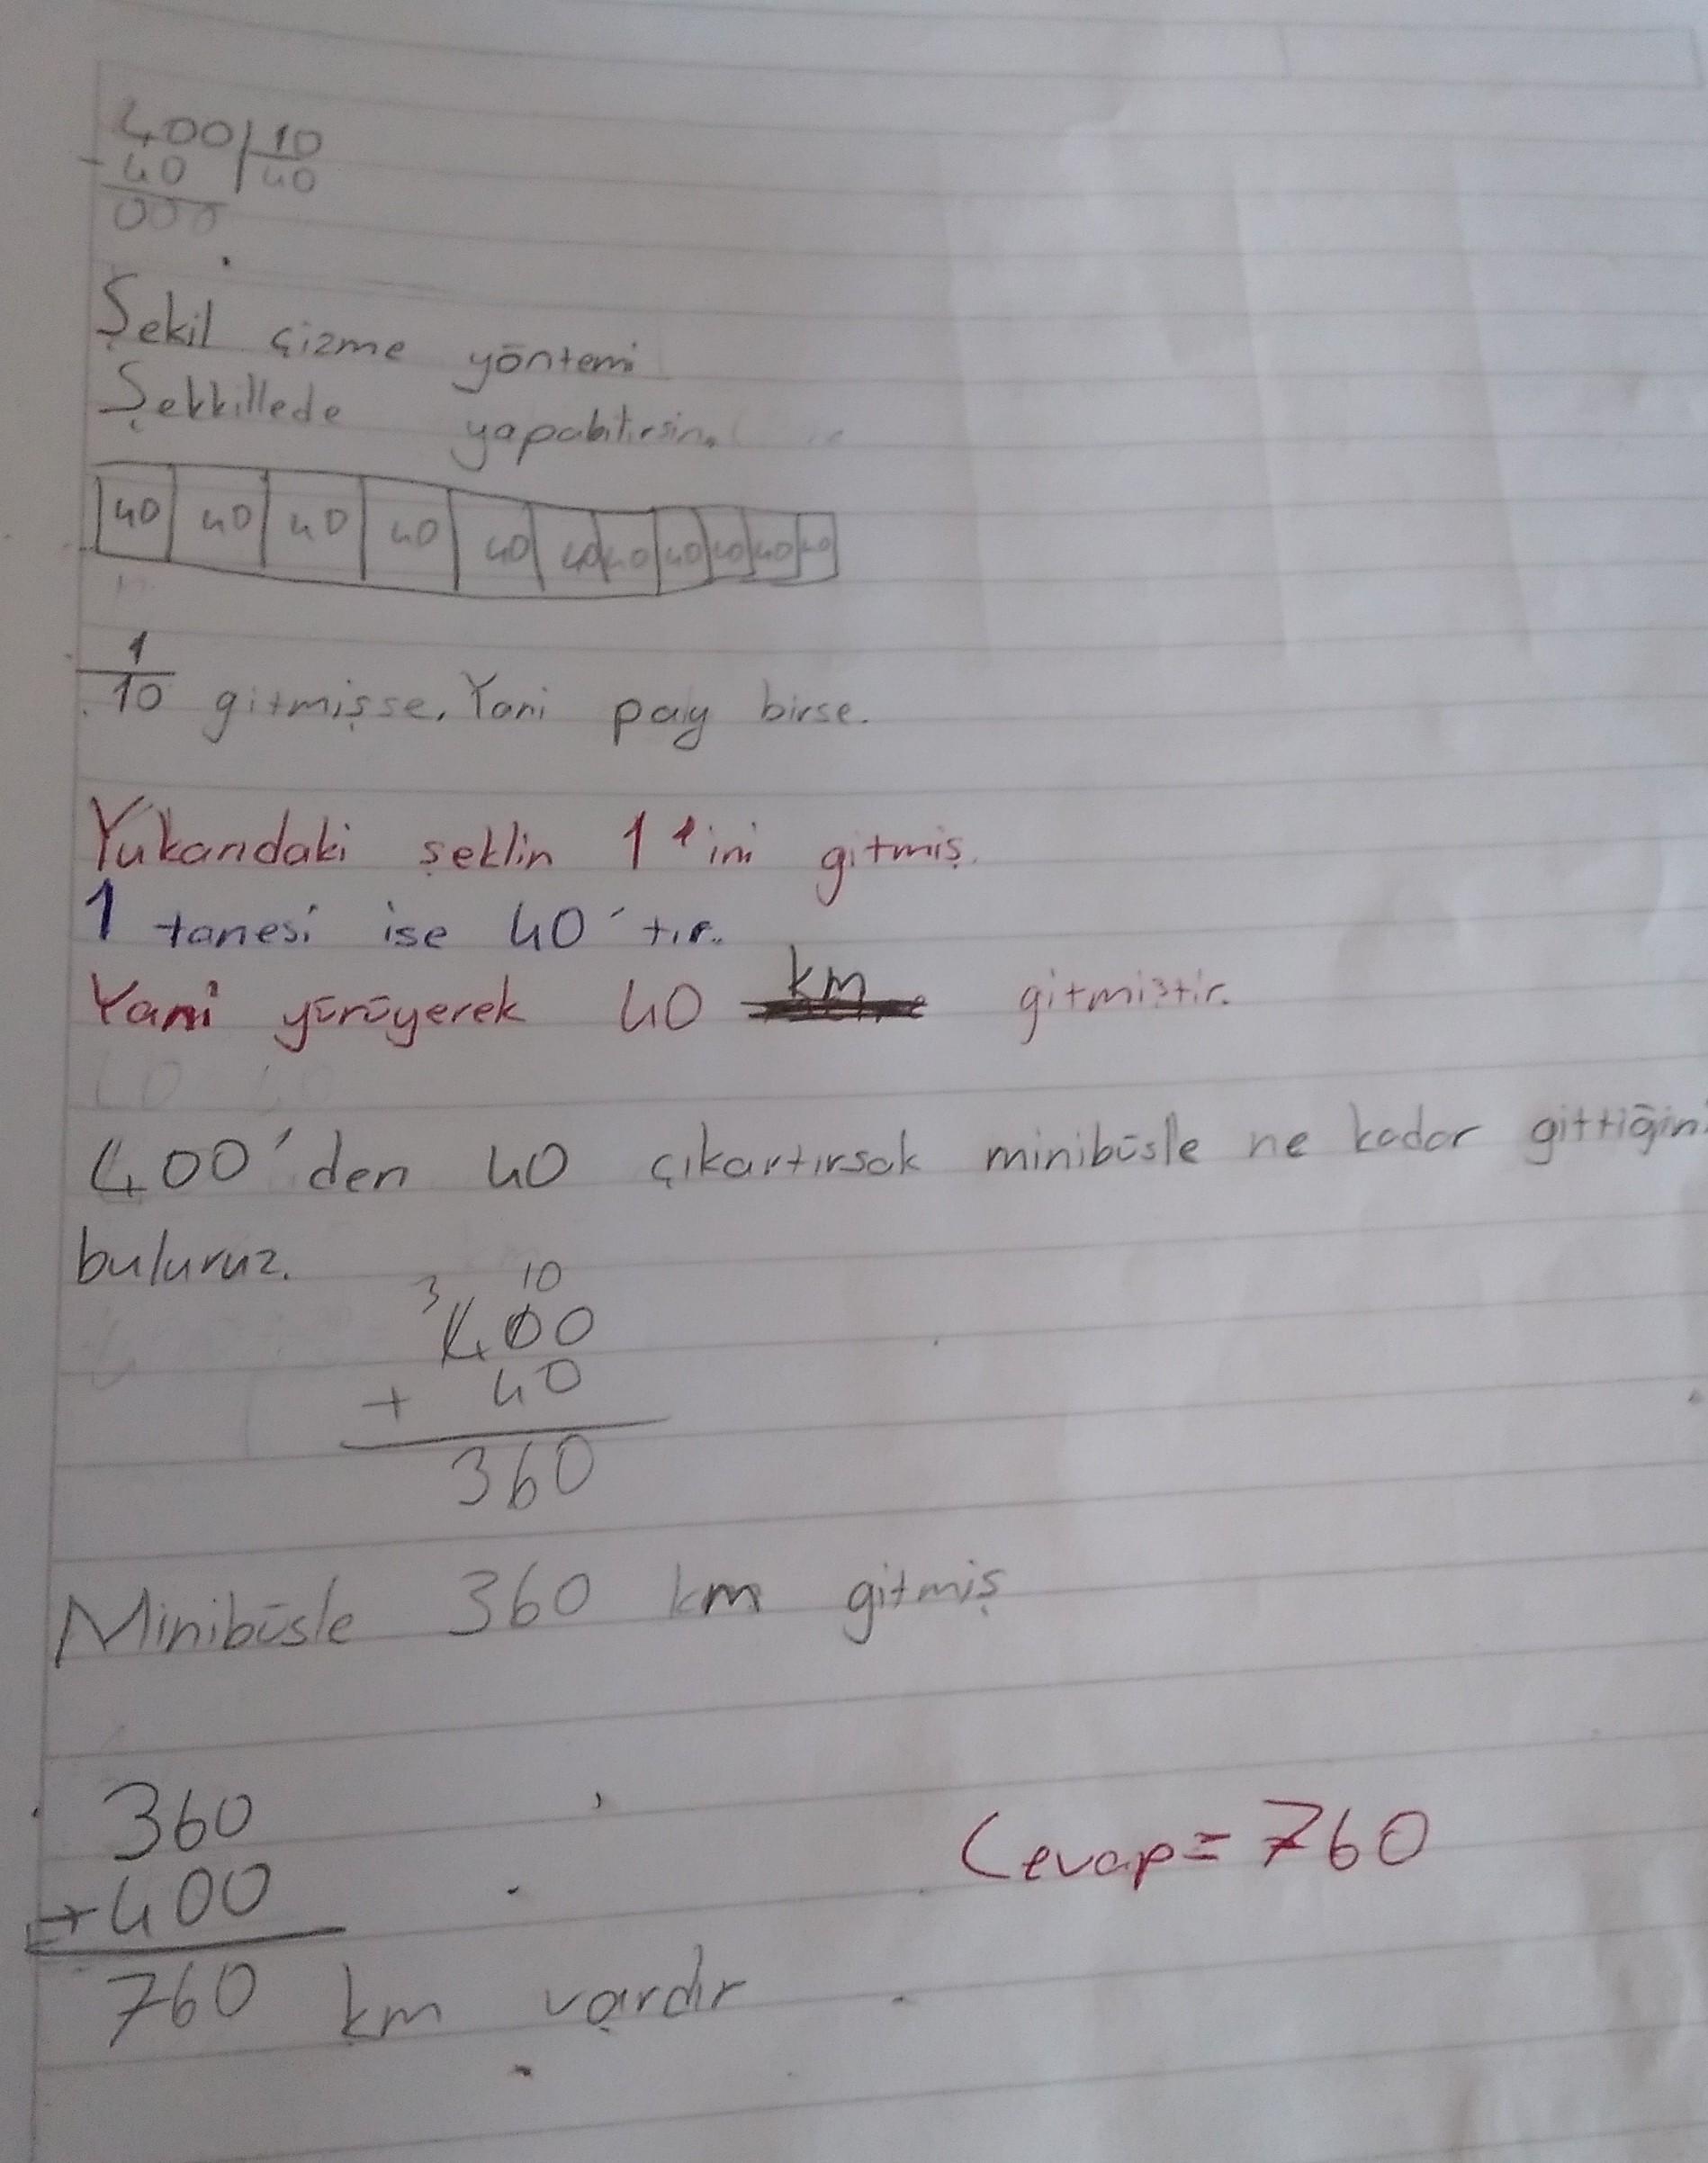 400 | 10
- 40 | 40
000
Şekil çizme yöntemi
Şekkillede yapabilirsin.
40 40 40 40 40 40 40 40 40 40 40
1
10 gitmişse. Yani pay birse.
Yukarıdaki şeklin 1'ini gitmiş.
1 tanesi ise 40'tır.
Yani yürüyerek 40 km gitmiştir.
400'den 40 çıkartırsak minibüsle ne kadar gittiğini
buluruz.
3 10
400
+ 40
360
Minibüsle 360 km gitmiş
360
+400
760 km vardır
Cevap= 760